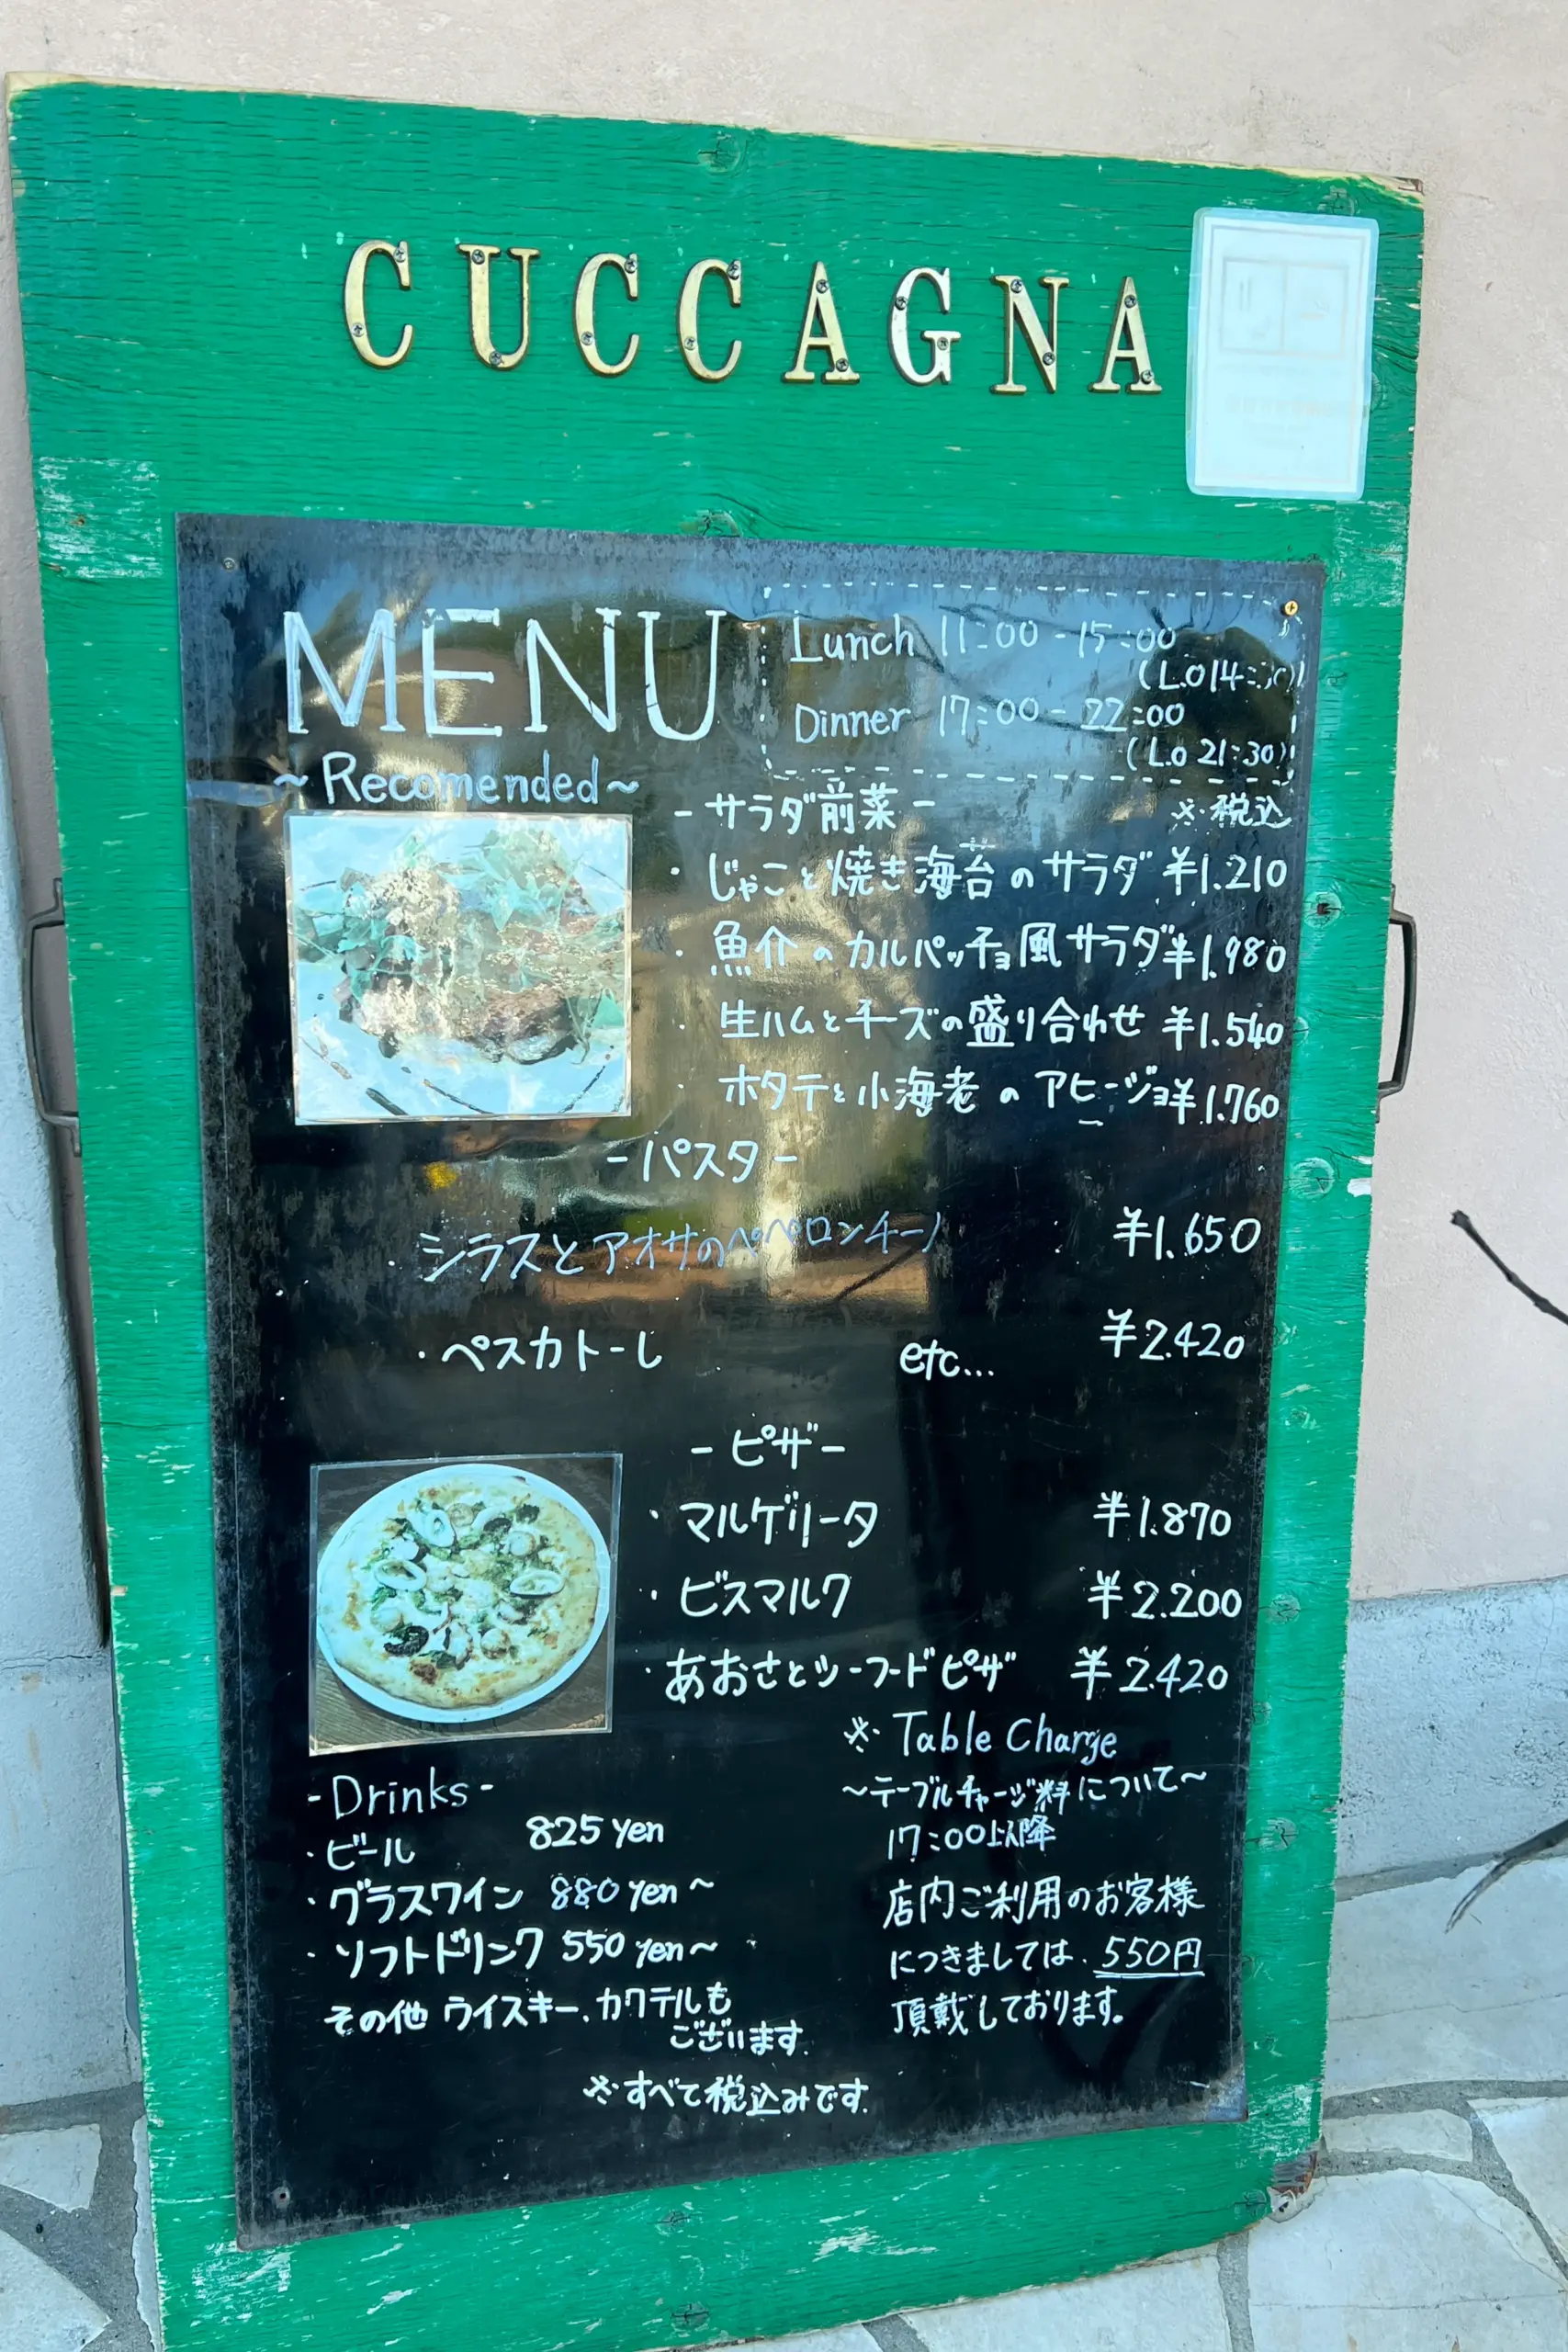 CUCCAGNA
MENU
Lunch 11:00-15:00
(L.O 14:30)
Dinner 17:00-22:00
(L.o 21:30)
~Recomended~
-サラダ前菜- ※税込
・じゃこと焼き海苔のサラダ ¥1.210
・魚介のカルパッチョ風サラダ ¥1.980
・生ハムとチーズの盛り合わせ ¥1.540
・ホタテと小海老のアヒージョ ¥1.760
-パスタ-
・シラスとアオサのペペロンチーノ ¥1.650
・ペスカトーレ etc... ¥2.420
-ピザ-
・マルゲリータ ¥1.870
・ビスマルク ¥2.200
・あおさとシーフードピザ ¥2.420
※Table Charge
~テーブルチャージ料について~
17:00以降
店内ご利用のお客様
につきましては、550円
頂戴しております。
-Drinks-
・ビール 825 yen
・グラスワイン 880 yen~
・ソフトドリンク 550 yen~
その他 ウイスキー、カクテルも
ございます。
※すべて税込みです。